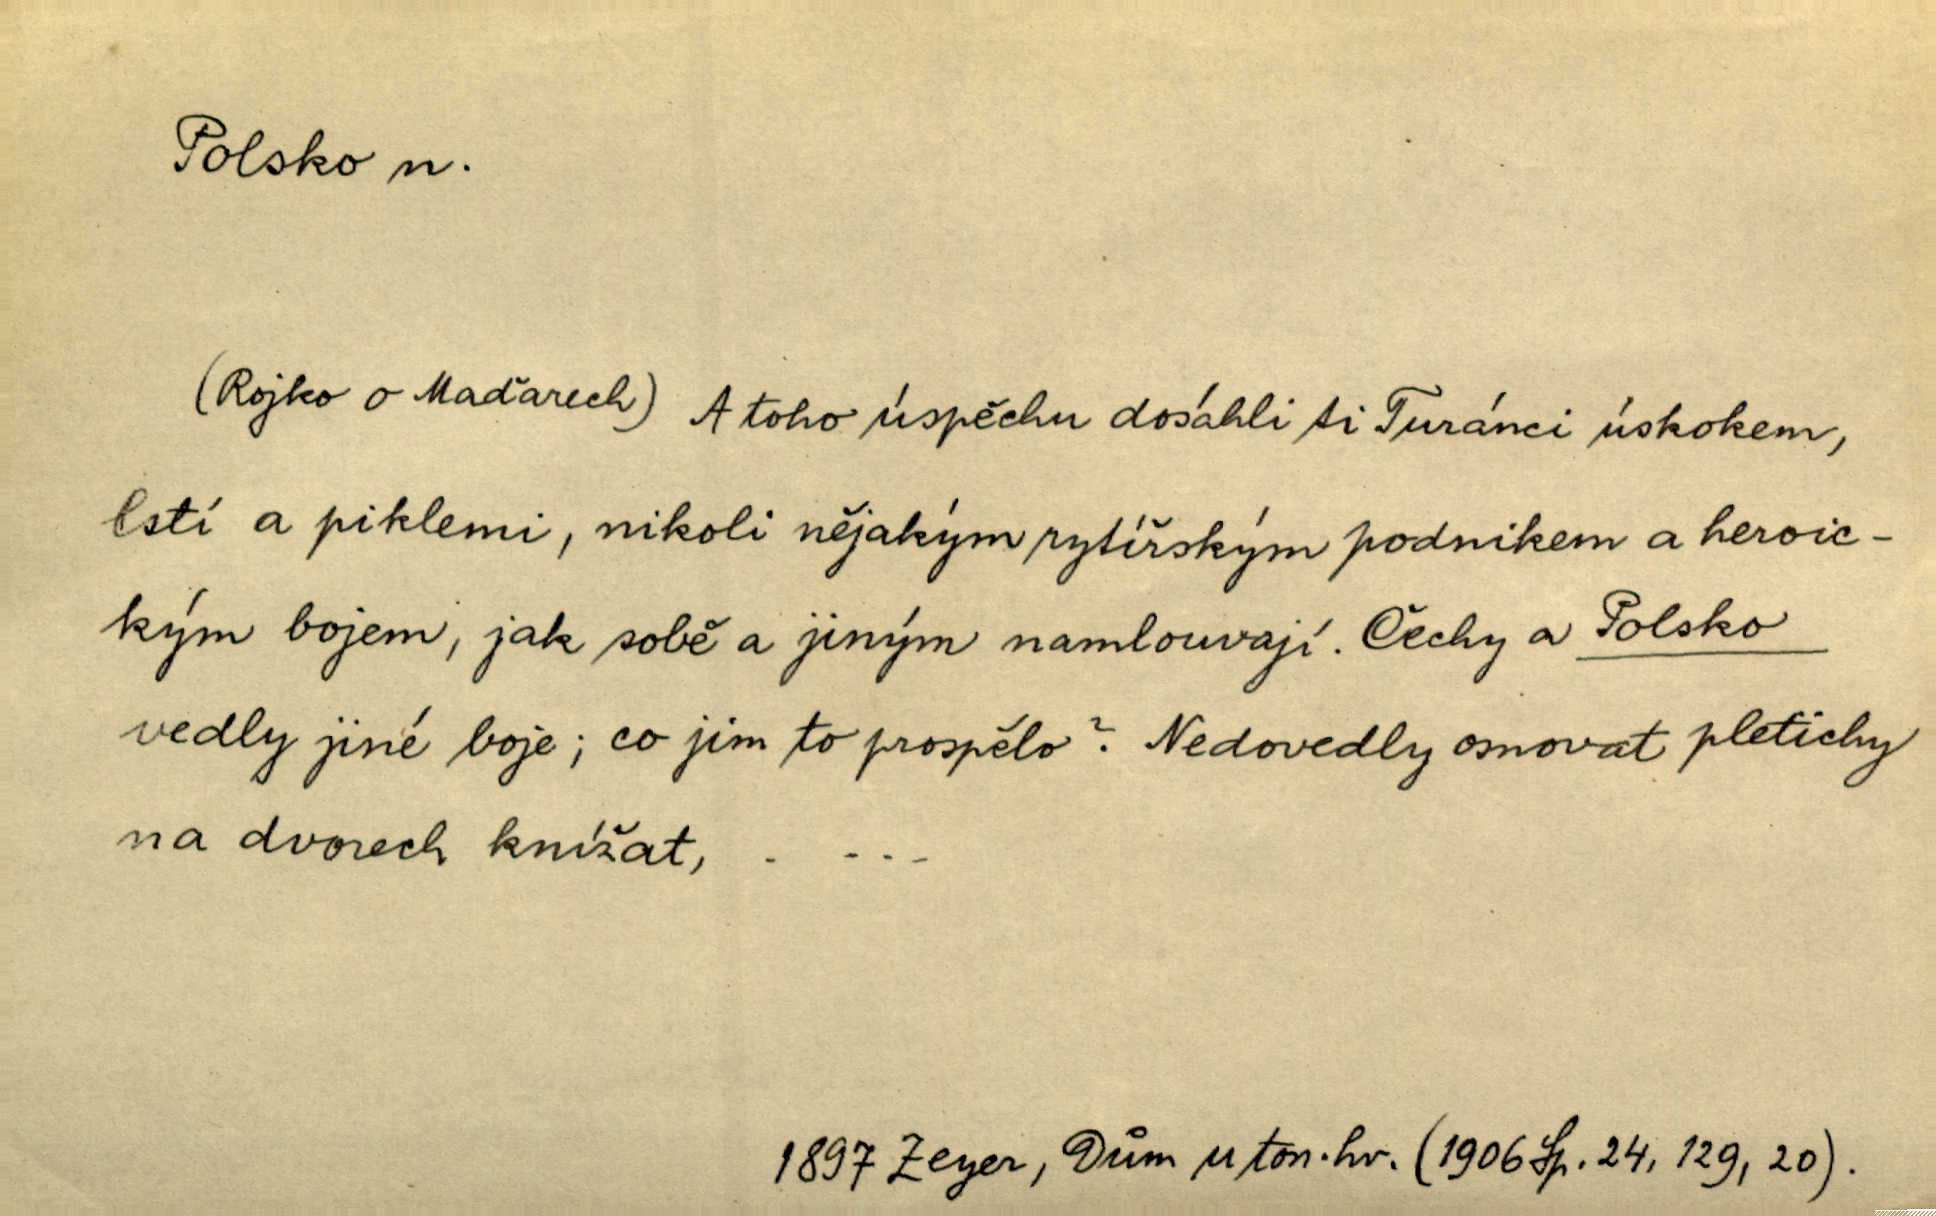 Polsko n.
(Rojko o Maďarech) A toho úspěchu dosáhli ti Turánci úskokem,
lstí a piklemi, nikoli nějakým rytířským podnikem a heroic-
kým bojem, jak sobě a jiným namlouvají. Čechy a Polsko
vedly jiné boje; co jim to prospělo? Nedovedly osnovat pletichy
na dvorech knížat, . ...
1897 Zeyer, Dům u ton. hv. (1906 Sp. 24, 129, 20).